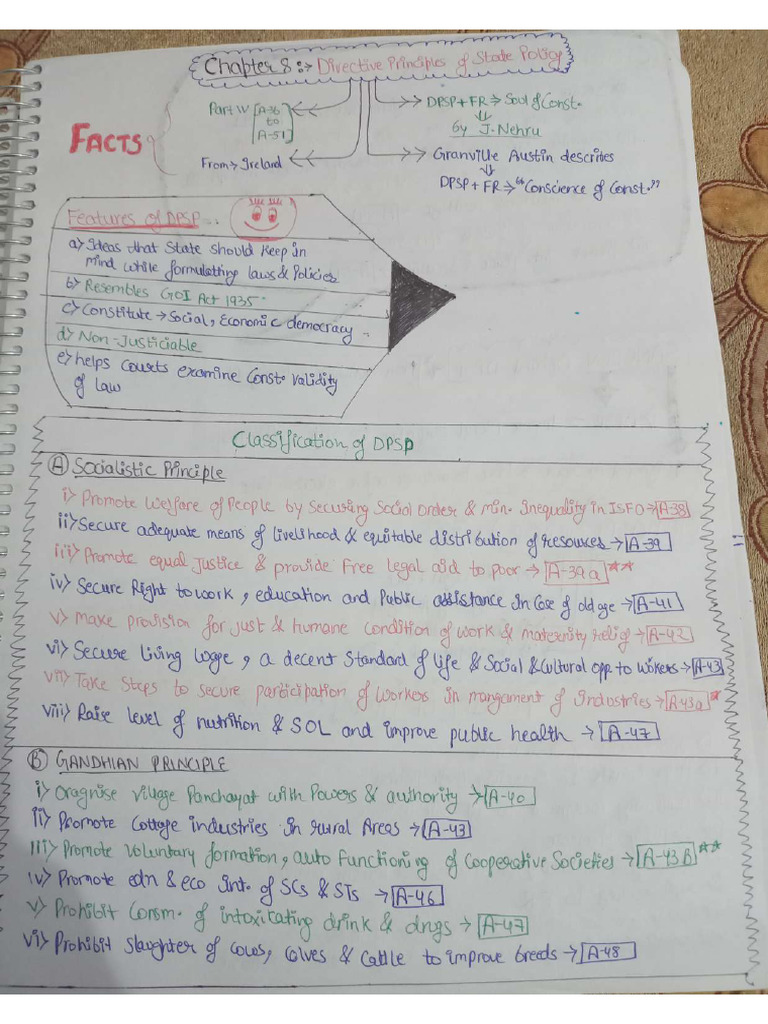 Chapter 8 :→ Directive Principles of State Policy
FACTS
Part IV [A-36 to A-51]
From → Ireland
DPSP + FR → Soul of Const.
by J. Nehru
Granville Austin describes
DPSP + FR → "Conscience of Const."
Features of DPSP...
a) Ideas that State should keep in
mind while formulatting laws & Policies
b) Resembles GOI Act 1935.
c) Constitute → Social, Economic democracy.
d) Non-Justiciable
e) helps Courts examine Const. validity
of law
Classification of DPSP
A Socialistic Principle
i) Promote Welfare of People by Securing Social Order & min. Inequality in ISFO → A-38
ii) Secure adequate means of livelihood & equitable distribution of resources → A-39
iii) Promote equal Justice & provide Free legal aid to poor → A-39a **
iv) Secure Right to work, education and Public assistance in Case of old age → A-41
v) Make provision for just & humane condition of work & maternity relief → A-42
vi) Secure living wage, a decent Standard of life & Social & Cultural opp. to wokers → A-43
vii) Take Steps to secure participation of workers in mangament of Industries → A-43a *
viii) Raise level of nutrition & SOL and improve public health → A-47
B GANDHIAN PRINCIPLE
i) Oragnise village Panchayat with Powers & authority → A-40
ii) Promote Cottage industries in rural Areas → A-43
iii) Promote voluntary formation, auto Functioning of Cooperative Societies → A-43B **
iv) Promote edn & eco Int. of SCs & STs → A-46
v) Prohibit Consm. of intoxitating drink & drugs → A-47
vi) Prohibit Slaughter of cows, Colves & Cattle to improve breeds → A-48